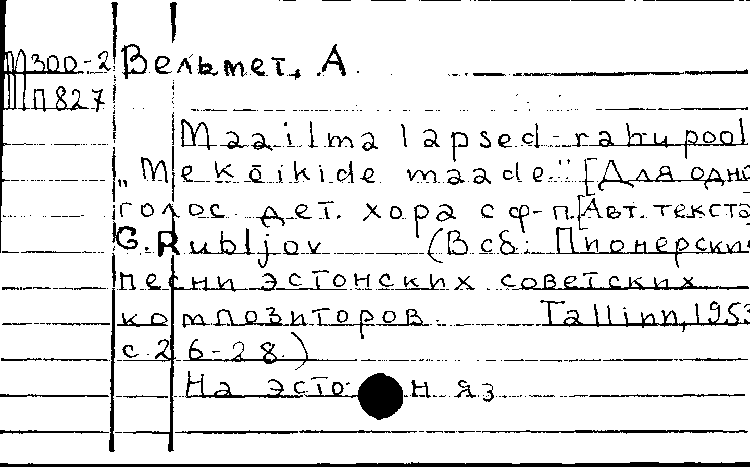 М300-2 Вельмет, А.
П827
Maailma lapsed-rahu pool
„Me kõikide maade." [Для одно
голос. дет. хора с ф-п. [Авт. текста
G. Rubljov (В сб: Пионерские
песни эстонских советских
композиторов. Tallinn, 1953
с 26-28.)
На эсто н яз